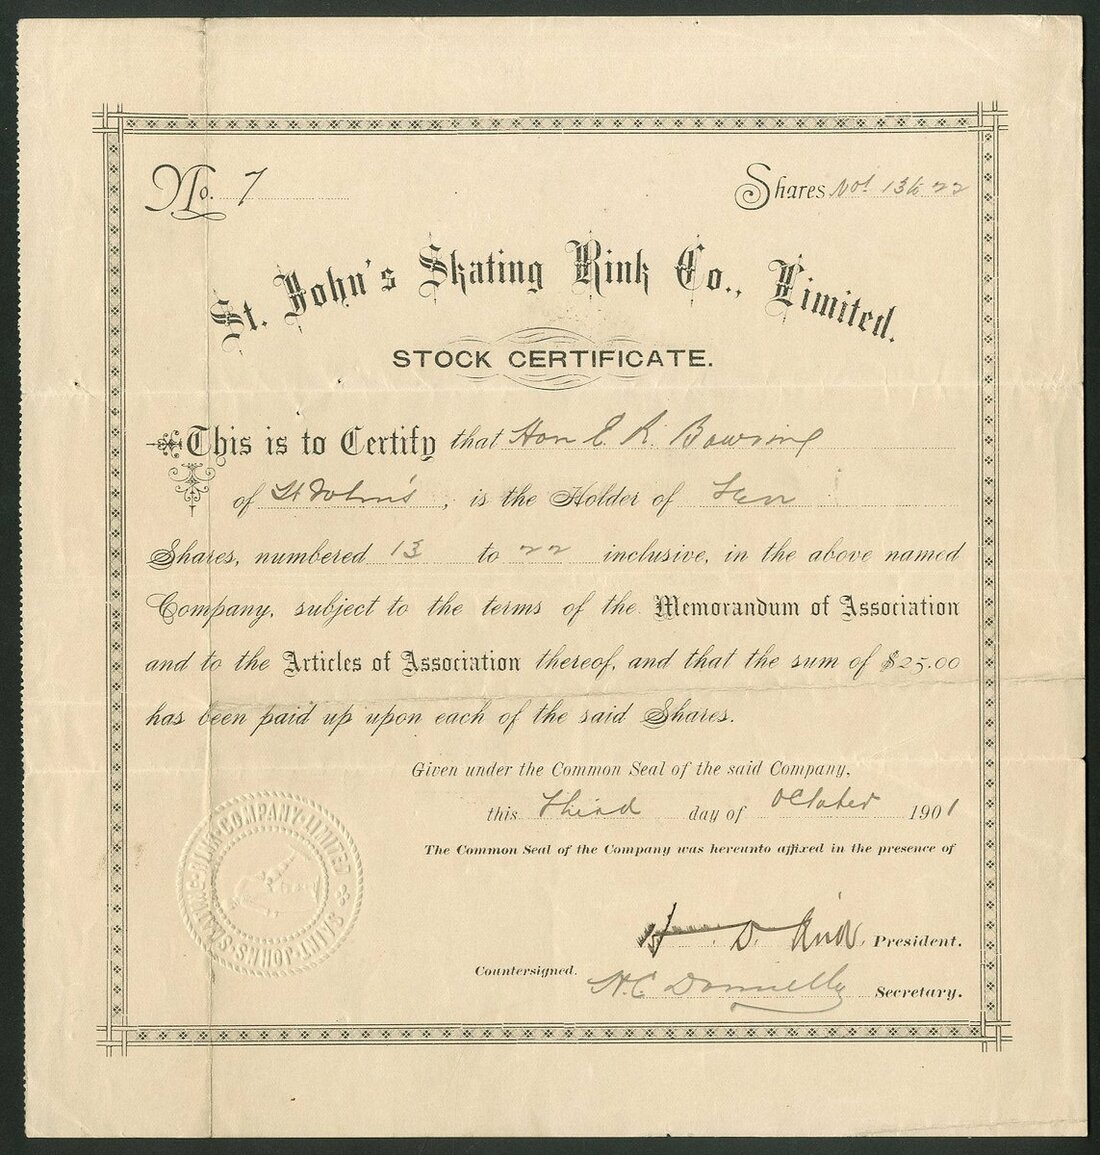 No. 7
Shares Nos 13 to 22
St. John's Skating Rink Co., Limited.
STOCK CERTIFICATE.
This is to Certify that Hon E. R. Bowring
of St John's, is the Holder of Ten
Shares, numbered 13 to 22 inclusive, in the above named
Company, subject to the terms of the Memorandum of Association
and to the Articles of Association thereof, and that the sum of $25.00
has been paid up upon each of the said Shares.
Given under the Common Seal of the said Company,
this Third day of October 1901
The Common Seal of the Company was hereunto affixed in the presence of
D. President.
Countersigned. N.C. Donnelly Secretary.
SAINT·JOHNS·SKATING·RINK·COMPANY·LIMITED